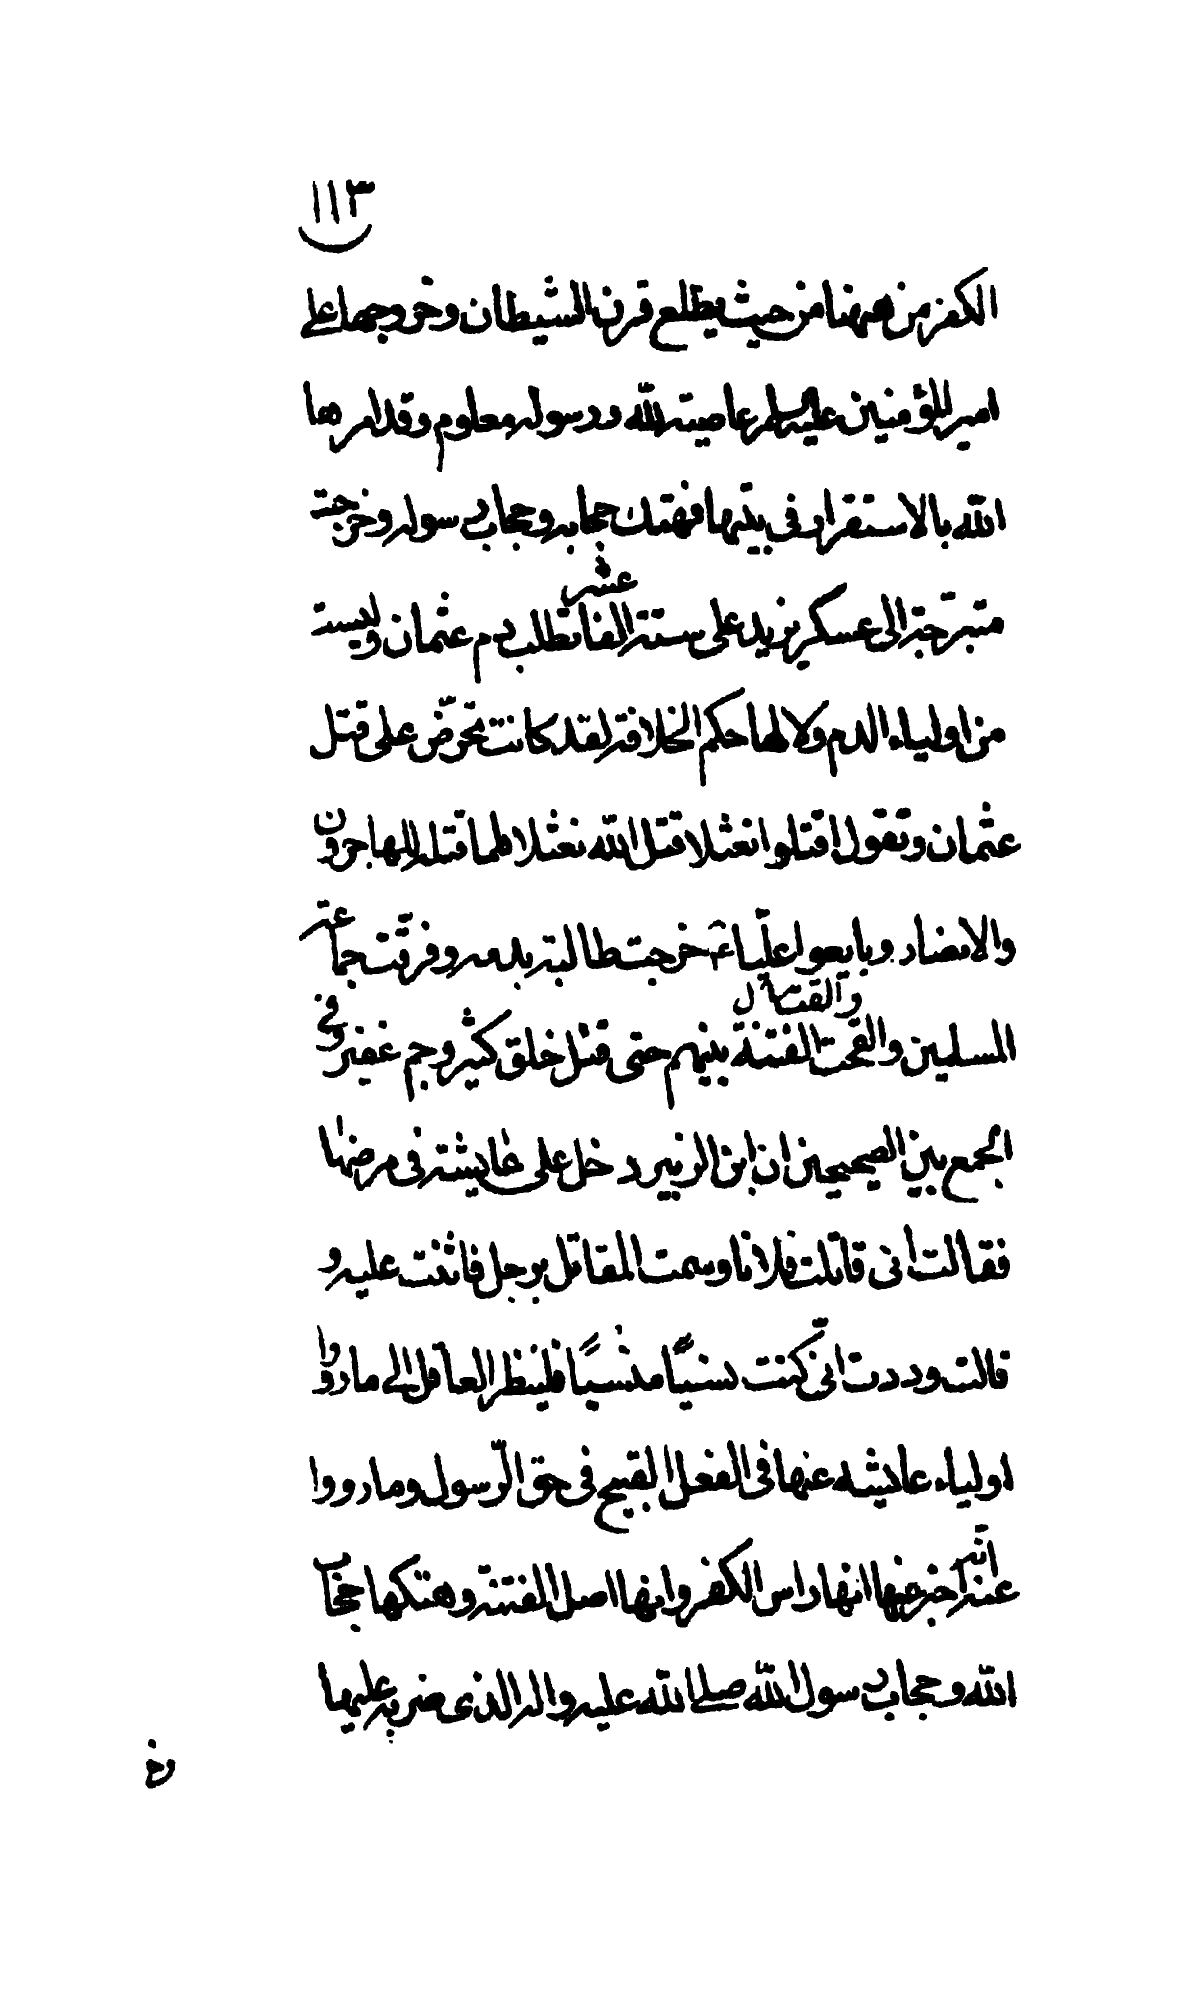 ١١٣
الكفر من ههنا من حيث يطلع قرن الشيطان وخروجها على
امير المؤمنين عليه السلم عاصية لله ورسوله معلوم وقد امرها
الله بالاستقرار فى بيتها فهتكت حجابه وحجاب رسوله وخرجت
متبرجة الى عسكر يزيد على ستة عشر الفا تطلب دم عثمان وليست
من اولياء الدم ولا لها حكم الخلافة لقد كانت تحرّض على قتل
عثمان وتقول اقتلوا نعثلا قتل الله نعثلا فلما قتله المهاجرون
والانصار وبايعوا عليّا ع خرجت طالبة بدمه وفرقت جماعة
المسلمين والقحت الفتنة والقتال بينهم حتى قتل خلق كثير وجم غفير وفى
الجمع بين الصحيحين ان ابن الزبير دخل على عايشة فى مرضها
فقالت انى قاتلت فلانا وسمت المقاتل برجل فاثنت عليه و
قالت وددت انّى كنت نسيًا منسيًا فلينظر العاقل الى ما رووا
اولياء عايشه عنها فى الفعل القبيح فى حق الرّسول وما رووا
عنه انّه اخبر عنها انها راس الكفر وانها اصل الفتنة وهتكها حجاب
الله وحجاب رسول الله صلى الله عليه واله الذى ضربه عليها